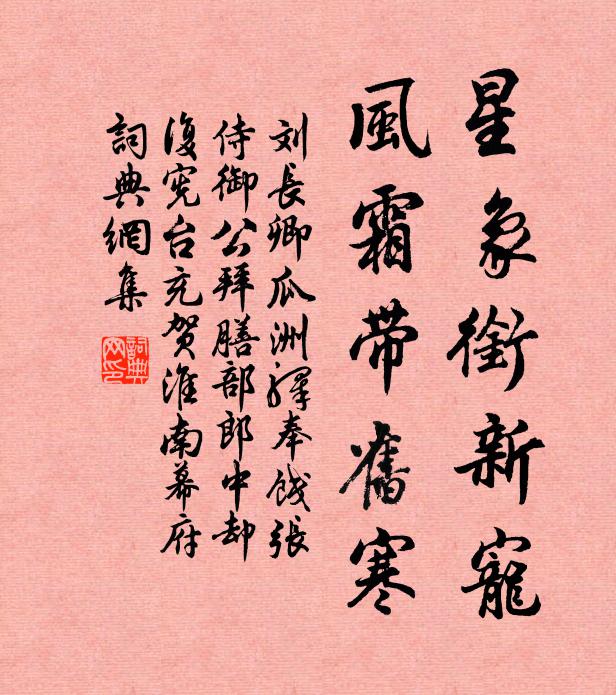 星象銜新寵
風霜带舊寒
刘長卿瓜洲驛奉餞張
侍御公拜膳部郎中却
復宪台充贺淮南幕府
詞典網集
詞典網印